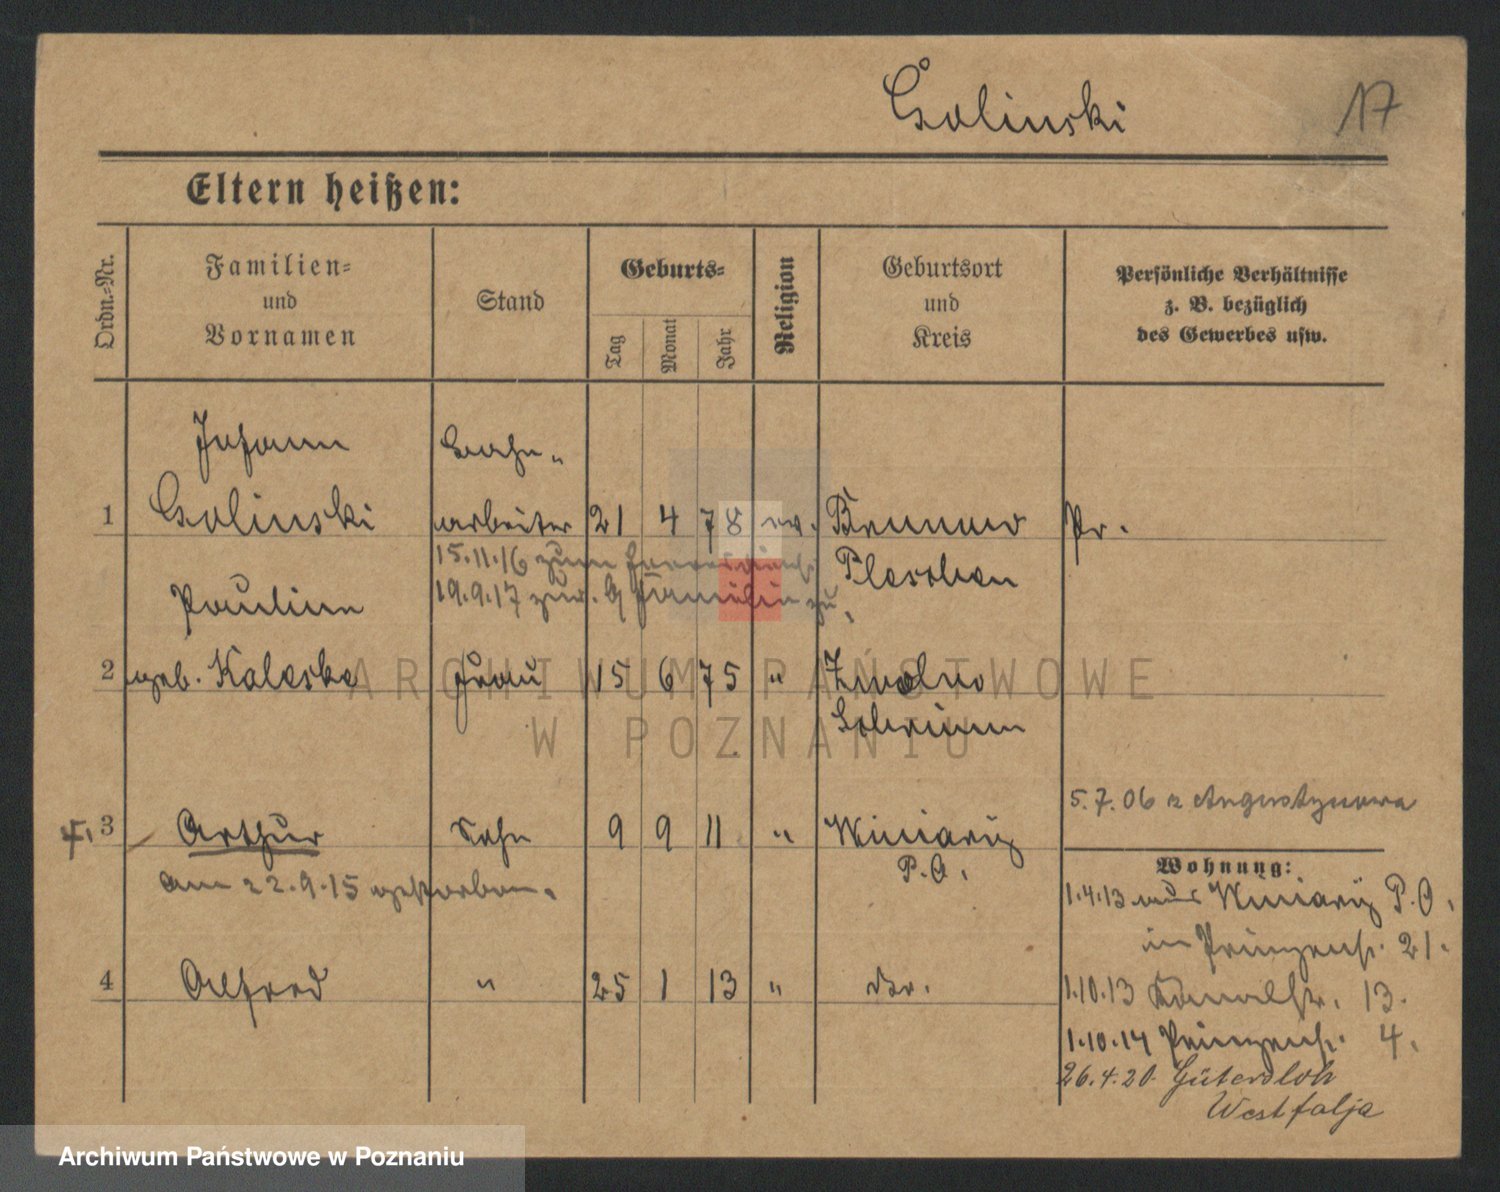 Golinski
17
Eltern heißen:
Ordn.=Nr.
Familien=
und
Vornamen
Stand
Geburts=
Tag
Monat
Jahr
Religion
Geburtsort
und
Kreis
Persönliche Verhältnisse
z. B. bezüglich
des Gewerbes usw.
Johann
Bahn-
1 Golinski arbeiter 21 4 78 ev. Pr.
15.11.16 zum
Pleschen
19.9.17 zur. Familie zu.
Pauline
2 geb. Kaleske Frau 15 6 75 "
5.7.06 Augustynowo
3 Arthur Sohn 9 9 11 " Winiary
P.O.
am 22.9.15 gestorben.
Wohnung:
1.4.13 aus Winiary P.O.
in Prinzenstr. 21.
4 Alfred " 25 1 13 " do.
1.10.13 Kanalstr. 13.
1.10.14 Prinzenstr. 4.
26.4.20. Gütersloh
Westfalja
ARCHIWUM PAŃSTWOWE
W POZNANIU
Archiwum Państwowe w Poznaniu